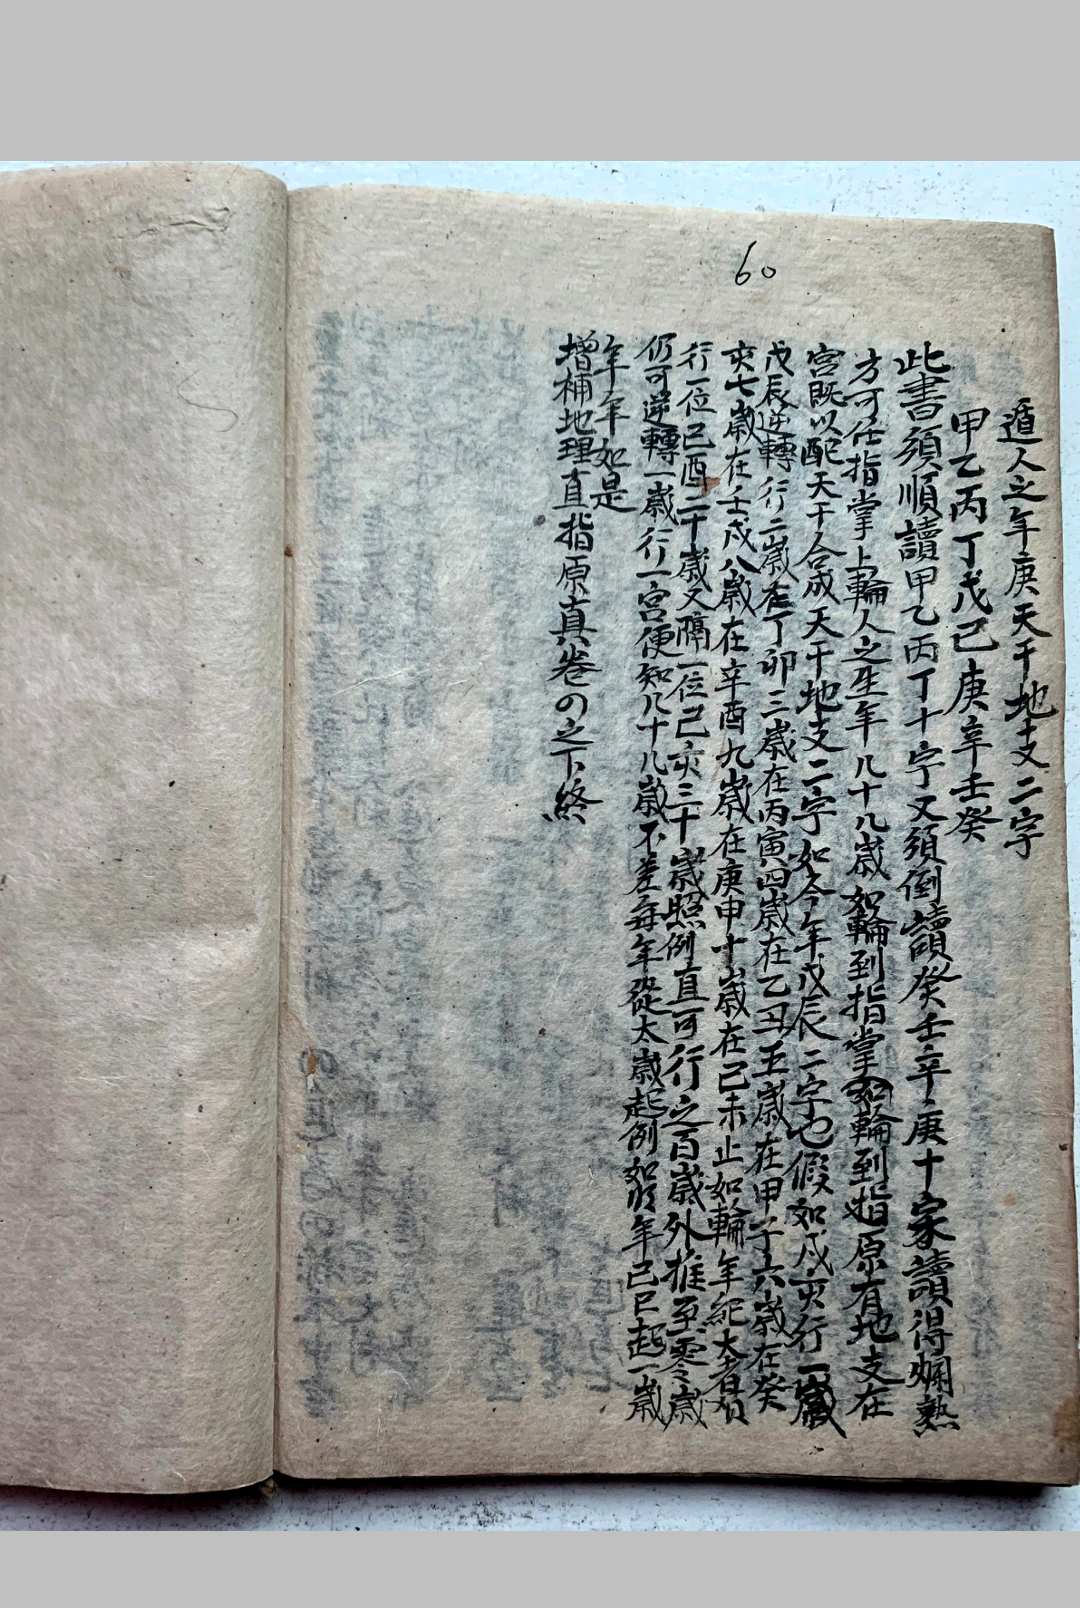 60
遁人之年庚天干地支二字
甲乙丙丁戊己庚辛壬癸
此書須順讀甲乙丙丁十字又須倒讀癸壬辛庚十家讀得爛熟
方可任指掌上輪人之生年几十几歲如輪到指掌如輪到指原有地支在
宮既以配天干合成天干地支二字如今年戊辰二字也假如戊亥行一歲
戊辰逆轉行二歲在丁卯三歲在丙寅四歲在乙丑五歲在甲子六歲在癸
亥七歲在壬戌八歲在辛酉九歲在庚申十歲在己未止如輪年紀大者
行一位己酉二十歲又隔一位己亥三十歲照例直可行之百歲外推至零歲
仍可逆轉一歲行一宮便知几十几歲不差每年從太歲起例如明年己巳起一歲
年年如是
增補地理直指原真卷の之下終